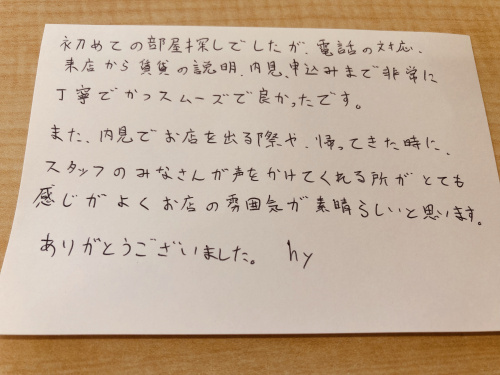 初めての部屋探しでしたが、電話の対応、
来店から賃貸の説明、内見、申込みまで非常に
丁寧でかつスムーズで良かったです。
また、内見でお店を出る際や、帰ってきた時に、
スタッフのみなさんが声をかけてくれる所がとても
感じがよくお店の雰囲気が素晴らしいと思います。
ありがとうございました。 hy